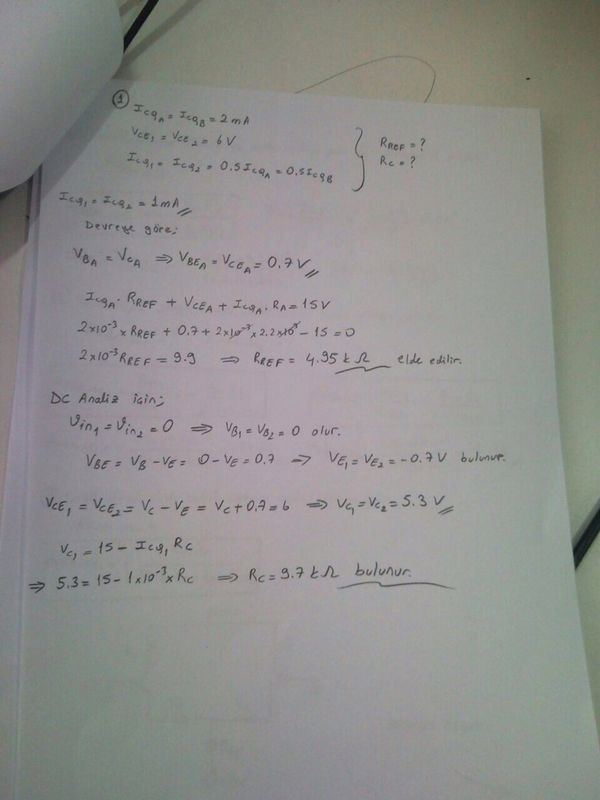 1
ICQA = ICQB = 2 mA
VCE1 = VCE2 = 6 V
ICQ1 = ICQ2 = 0.5 ICQA = 0.5 ICQB
RREF = ?
RC = ?
ICQ1 = ICQ2 = 1 mA
Devreye göre;
VBA = VCA ⇒ VBEA = VCEA = 0.7 V
ICQA . RREF + VCEA + ICQA . RA = 15 V
2×10⁻³ × RREF + 0.7 + 2×10⁻³ × 2.2×10³ - 15 = 0
2×10⁻³ RREF = 9.9 ⇒ RREF = 4.95 k Ω elde edilir.
DC Analiz için;
Vin1 = Vin2 = 0 ⇒ VB1 = VB2 = 0 olur.
VBE = VB - VE = 0 - VE = 0.7 ⇒ VE1 = VE2 = -0.7 V bulunur.
VCE1 = VCE2 = VC - VE = VC + 0.7 = 6 ⇒ VC1 = VC2 = 5.3 V
VC1 = 15 - ICQ1 RC
⇒ 5.3 = 15 - 1×10⁻³ × RC ⇒ RC = 9.7 k Ω bulunur.